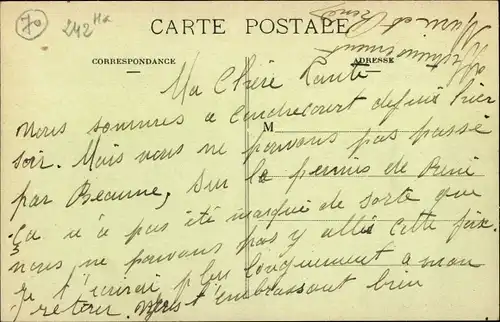 70
242 Ha
CARTE POSTALE
CORRESPONDANCE
ADRESSE
Ma Chère Tante
Nous sommes à Cendrecourt depuis hier
soir. Mais nous ne pouvons pas passé
M
par Beaune, sur la permis de René
ça n'a pas été marqué de sorte que
nous ne pouvons pas y allé cette fois.
Je t'écrirai plus longuement a mon
retour. Nous t'embrassont bien
affectueusement
René